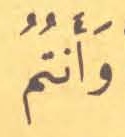 وَأَنتُمُ